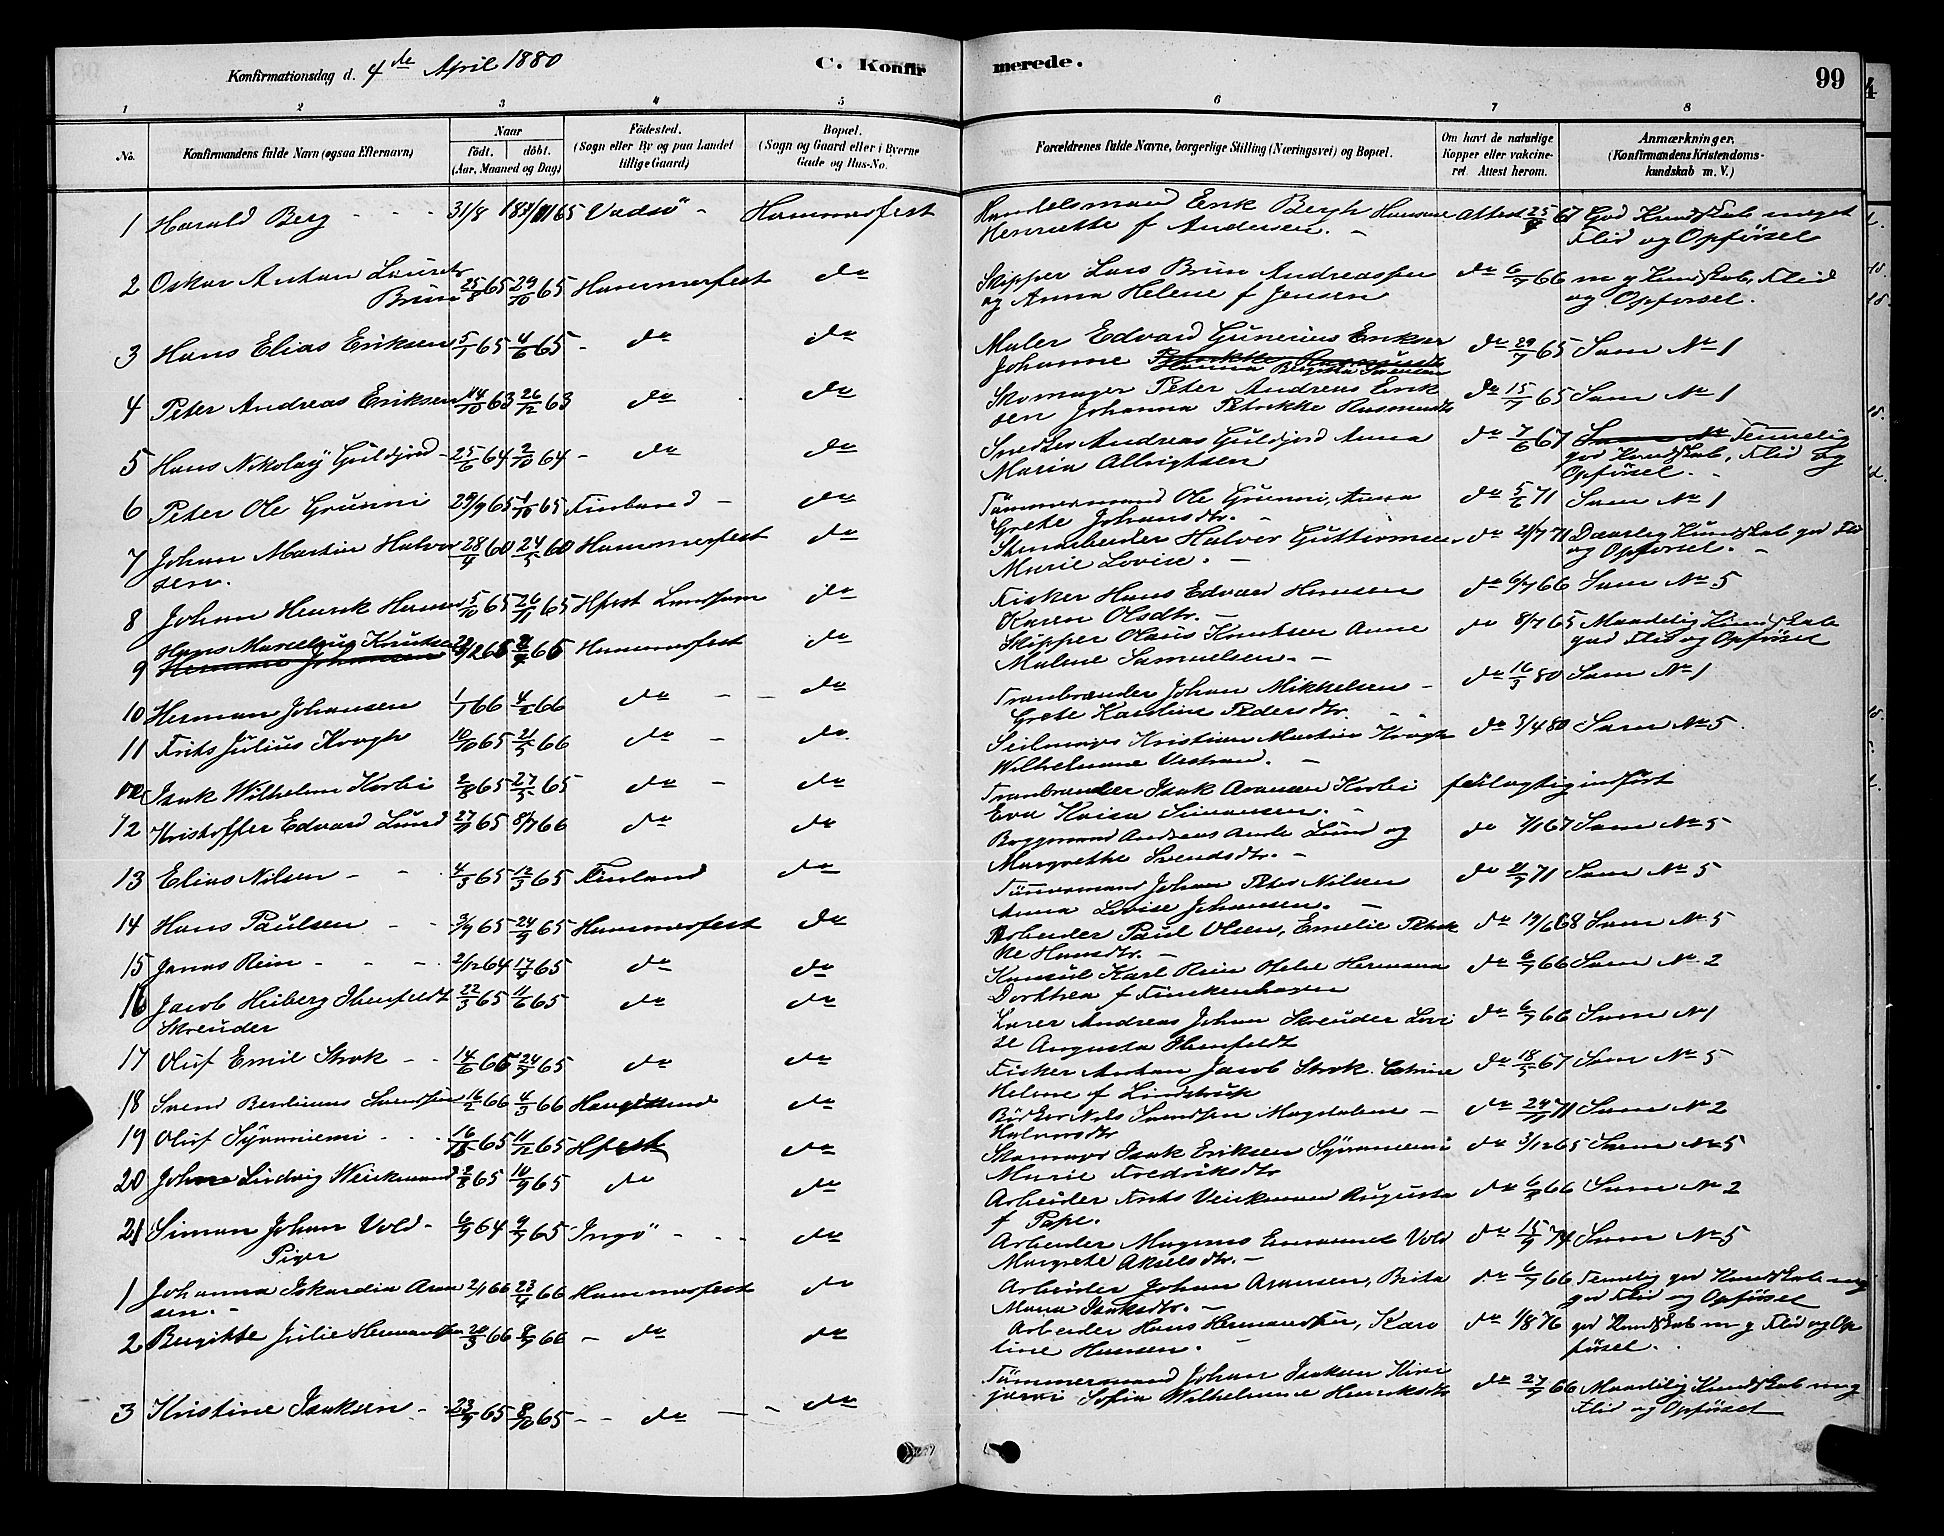 Konfirmationsdag d. 4de April 1880
C. Konfirmerede.
99
1 2 3 4 5 6 7 8
No.
Konfirmandens fulde Navn (ogsaa Efternavn)
Naar
födt. döbt.
(Aar, Maaned og Dag)
Födested.
(Sogn eller By og paa Landet
tillige Gaard)
Bopæl.
(Sogn og Gaard eller i Byerne
Gade og Hus-No.
Forældrenes fulde Navne, borgerlige Stilling (Næringsvei) og Bopæl.
Om havt de naturlige
Kopper eller vakcine-
ret. Attest herom.
Anmærkninger.
(Konfirmandens Kristendoms-
kundskab m. V.)
1 Harald Berg 31/8 Vadsö Hammerfest Handelsmand Erik Bergh Attest God Kundskab meget
Henriette f Andersen. Flid og Opförsel
2 Oskar Anton Lauritz 25/8 65 29/10 65 Hammerfest do Skipper Lars Brun Andreassen do 6/7 66 m g Kundskab, Flid
Brun og Anna Helene f Jensen og Opförsel.
3 Hans Elias Eriksen 5/1 65 4/6 65 do do Maler Edvard Gunerius Eriksen do 29/7 65 Sam No 1
Johanne
4 Peter Andreas Eriksen 14/10 63 26/12 63 do do Skomager Peter Andreas Erik do 15/7 65 Sam No 1
sen Johanna Petrikke Rasmusdtr
5 Hans Nikolay Guldjord 25/6 64 2/10 64 do do Snedker Andreas Guldjord Anna do 7/6 67 Temmelig
Maria Albrigtsen god Kundskab, Flid og
Opförsel.
6 Peter Ole Grunni 29/9 65 1/10 65 Finland do Tömmermand Ole Grunni, Anna do 5/6 71 Sam No 1
Grete Johansdtr.
7 Johan Martin Halvor 28/4 60 24/5 60 Hammerfest do Halvor Guttormsen do 71 Daarlig Kundskab god Flid
sen. Marie Lovise. og Opförsel.
8 Johan Henrik Hansen 5/10 65 26/11 65 Hfest Landsogn do Fisker Hans Edvard Hansen do 6/7 66 Sam No 5
Karen Olsdtr.
9 Hans Marcelius Knutsen Hammerfest do Skipper Olaus Knutsen Anne do 8/7 65 Maadelig Kundskab
Herman Johansen Malene Samuelsen. god Flid og Opförsel
10 Herman Johansen 1/1 66 4/2 66 do do Tranbrænder Johan Mikkelsen do 16/3 80 Sam No 1
Grete Karoline Pedersdtr.
11 Frits Julius Krogh 10/10 65 21/5 66 do do Seilmager Kristian Martin Krogh do 3/4 80 Sam No 5.
Wilhelmine
Isak Wilhelm Korbi 2/8 65 27/5 65 do do Tranbrænder Isak Aronsen Korbi feilagtig indfört
Eva Kaisa Simonsen.
12 Kristoffer Edvard Lund 27/7 65 8/7 66 do do Andreas Lund og do 7/1 67 Sam No 5
Margrethe Svendsdtr.
13 Elias Nilsen 4/3 65 12/3 65 Finland do Tömmermand Johan Peter Nilsen do 71 Sam No 5
Anna Lovise Johansen.
14 Hans Paulsen 3/9 65 24/9 65 Hammerfest do Arbeider Paul Olsen, Emelie Petrik do 19/6 68 Sam No 5
ke Hansdtr.
15 Jonas Rein 2/12 64 17/4 65 do do Konsul Karl Rein Hermana do 6/7 66 Sam No. 2
Dorthea f Finckenhagen
16 Jacob Heiberg Ihenfeldt 22/3 65 11/6 65 do do Lærer Andreas Johan Skreuder Lovi do 6/7 66 Sam No 1
Skreuder se Augusta Ihenfeldt
17 Oluf Emil Strok 14/6 65 24/9 65 do do Fisker Anton Jacob Strok. Catrine do 18/5 67 Sam No 5
Helene f Lindstrup
18 Svend Berlinius Svendsen 16/2 66 4/3 66 Haugesund do Bödker Nils Svendsen Magdalene do 24/ 71 Sam No 2
Halvorsdtr
19 Oluf Syvaniemi 16/ 65 11/12 65 Hfest do Skomager Isak Eriksen Syvaniemi do 3/12 65 Sam No 5
Marie Fredriksdtr
20 Johan Ludvig Weickmand 2/8 65 10/9 65 do do Arbeider Frits Veickmand Augusta do 66 Sam No 2
f Pape.
21 Simon Johan Vold 6/9 64 9/7 65 Ingö do Arbeider Magnus Emanuel Vold do 15/9 74 Sam No 5
Margrete Akselsdtr.
Piger
1 Johanna Iskardia Aron 2/1 66 23/4 66 Hammerfest do Arbeider Johan Aronsen, Brita do 6/7 66 Temmelig god Kundskab meg
sen. Maria Isaksdtr. god Flid og Opförsel
2 Bergitte Julie Hermansen 20/3 66 8/7 66 do do Arbeider Hans Hermansen, Karo do 1/8 76 god Kundskab m g Flid og Op
line Hansen. försel.
3 Kristine Isaksen 23/9 65 8/10 65 do do Tömmermand Johan Isaksen Kivi do 27/7 66 Maadelig Kundskab meg
jarvi Sofia Wilhelmine Henriksdtr Flid og Opförsel